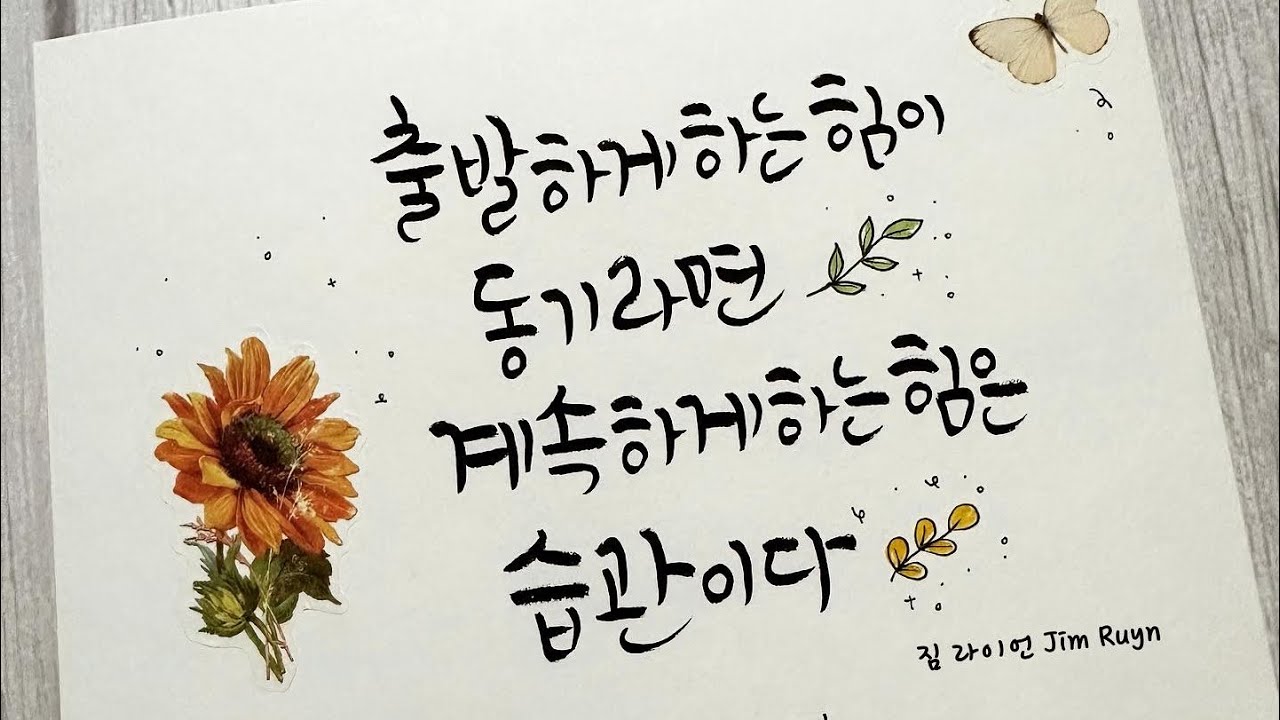 출발하게 하는 힘이
동기라면
계속하게 하는 힘은
습관이다
짐 라이언 Jim Ruyn